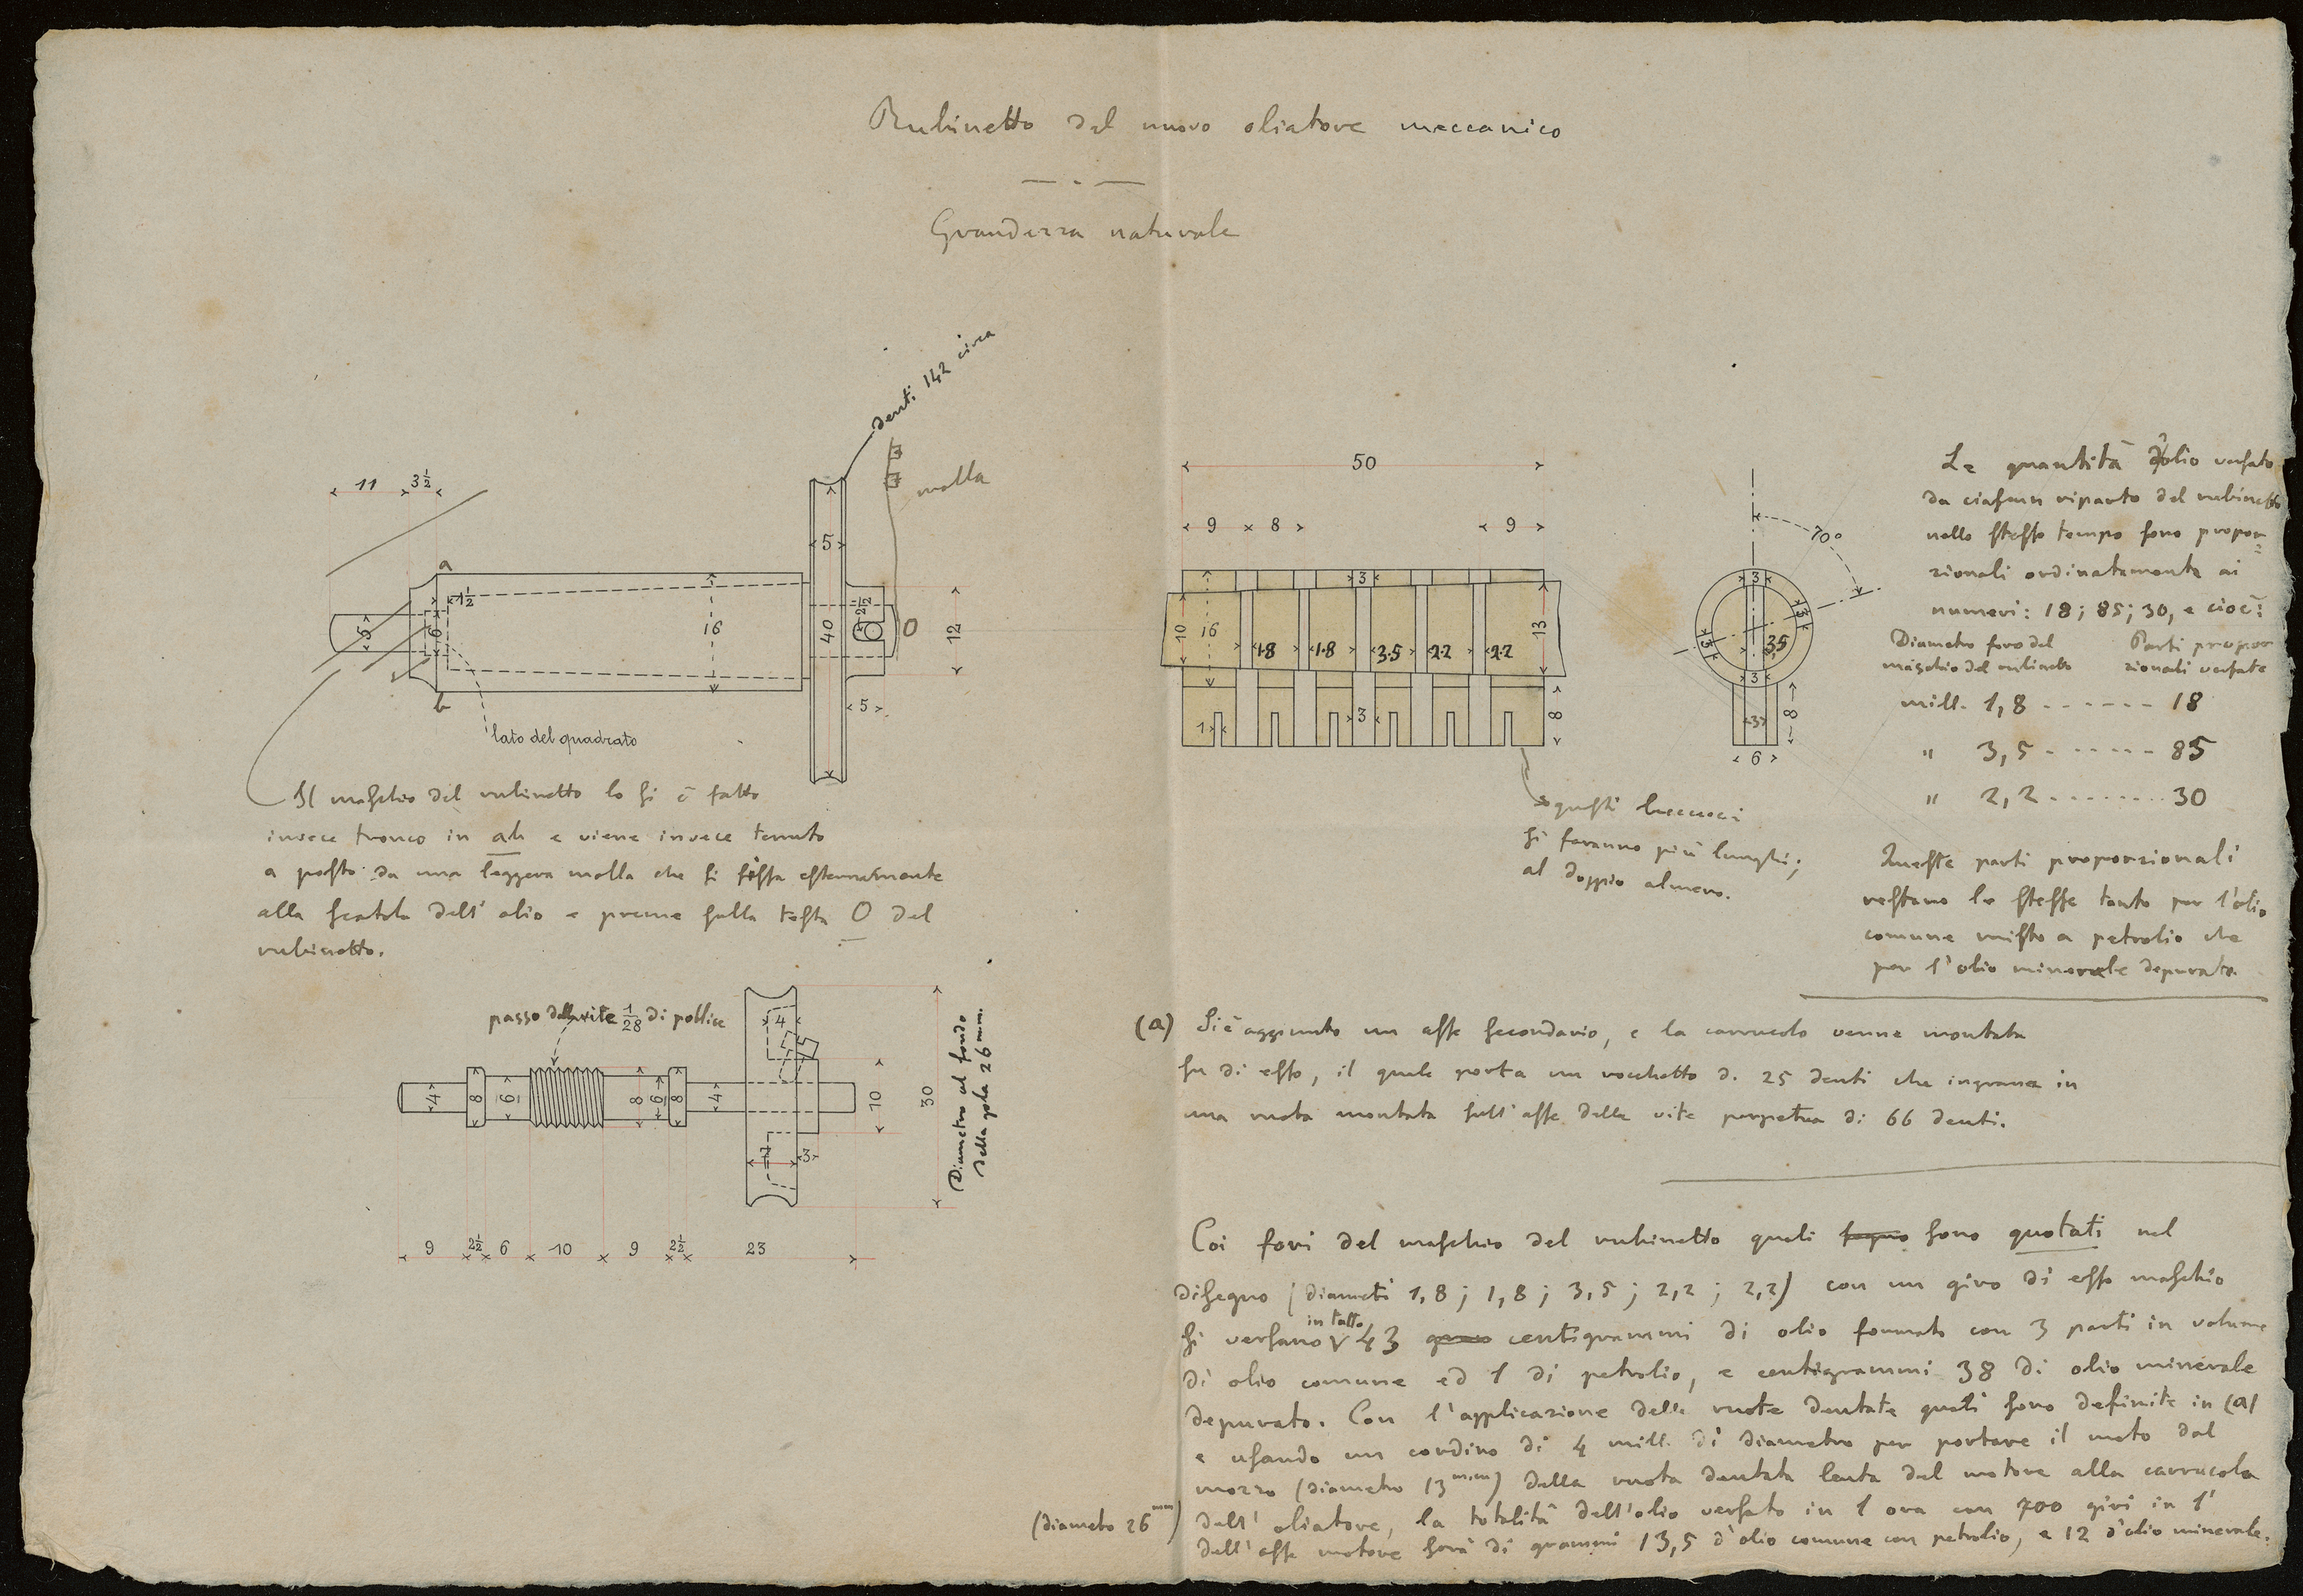 Rubinetto del nuovo oliatore meccanico
Grandezza naturale
denti 142 circa
molla
11 3½
a
1½
5
6
16
5
40
2½
O
12
5
b
lato del quadrato
Il maschio del rubinetto lo si è fatto
invece tronco in ab e viene invece tenuto
a posto da una leggera molla che si fissa esternamente
alla scatola dell'olio e preme sulla testa O del
rubinetto.
passo della vite 1/28 di pollice
4 8 6 8 6 8 4
4
7 3
10
30
Diametro al fondo
della gola 26 mm.
9 2½ 6 10 9 2½ 23
50
9 8 9
3
10 16 13
1.8 1.8 3.5 2.2 2.2
1 3 8
questi beccucci
si faranno più lunghi;
al doppio almeno.
70°
3
3
5
3,5
3
3 8
6
Le quantità d'olio versato
da ciascun riparto del rubinetto
nello stesso tempo sono propor=
zionali ordinatamente ai
numeri: 18; 85; 30, e cioè:
Diametro foro del Parti propor
maschio del rubinetto zionali versate
mill. 1,8 ------ 18
" 3,5 ------ 85
" 2,2 ........ 30
Queste parti proporzionali
restano le stesse tanto per l'olio
comune misto a petrolio che
per l'olio minerale depurato.
(a) Si è aggiunto un asse secondario, e la carrucola venne montata
su di esso, il quale porta un rocchetto di 25 denti che ingrana in
una ruota montata sull'asse della vite perpetua di 66 denti.
Coi fori del maschio del rubinetto quali sono quotati nel
disegno (diametri 1,8; 1,8; 3,5; 2,2; 2,2) con un giro di esso maschio
si versano in tutto 43 centigrammi di olio formato con 3 parti in volume
di olio comune ed 1 di petrolio, e centigrammi 38 di olio minerale
depurato. Con l'applicazione delle ruote dentate quali sono definite in (a)
e usando un cordino di 4 mill. di diametro per portare il moto dal
mozzo (diametro 13 mm) della ruota dentata lenta del motore alla carrucola
(diametro 26 mm) dell'oliatore, la totalità dell'olio versato in 1 ora con 700 giri in 1'
dell'asse motore sarà di grammi 13,5 d'olio comune con petrolio, e 12 d'olio minerale.